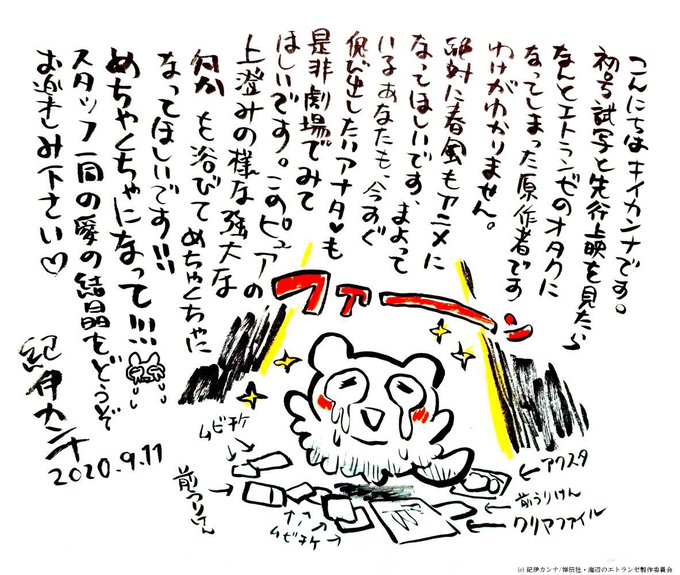 こんにちはキイカンナです。
初号試写と先行上映を見たら
なんとエトランゼのオタクに
なってしまった原作者です
わけがわかりません。
絶対に春風もアニメに
なってほしいです、まよって
いるあなたも、今すぐ
飛び出したいアナタ♥も
是非劇場でみて
ほしいです。このピュアの
上澄みの様な強大な
何かを浴びてめちゃくちゃに
なってほしいです!!!
めちゃくちゃになって!!!
スタッフ一同の愛の結晶をどうぞ
お楽しみ下さい♡
紀伊カンナ
2020.9.11
ファーン
ムビチケ
前うりけん
ムビチケ
アクスタ
前うりけん
クリアファイル
(c) 紀伊カンナ/祥伝社・海辺のエトランゼ製作委員会